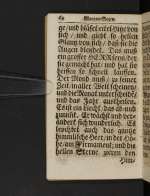 Morgen-Segen
ge/und bläset viel Hitze von
sich / und giebt so hellen
Glantz von sich / daß sie die
Augen blendet. Das muß
ein grosser HErr seyn / der
sie gemacht hat / und hat sie
heissen so schnell lauffen.
Der Mond muß / zu seiner
Zeit in aller Welt scheinen/
und die Monat unterscheiden
und das Jahr austheilen.
Es ist ein Liecht / das ab und
zunimt. Er wächst und ver-
ändert sich wunderlich. Es
leuchtet auch das gantze
himmlische Heer / in der Hö-
he am Firmament / und die
hellen Sterne zieren den
Him-